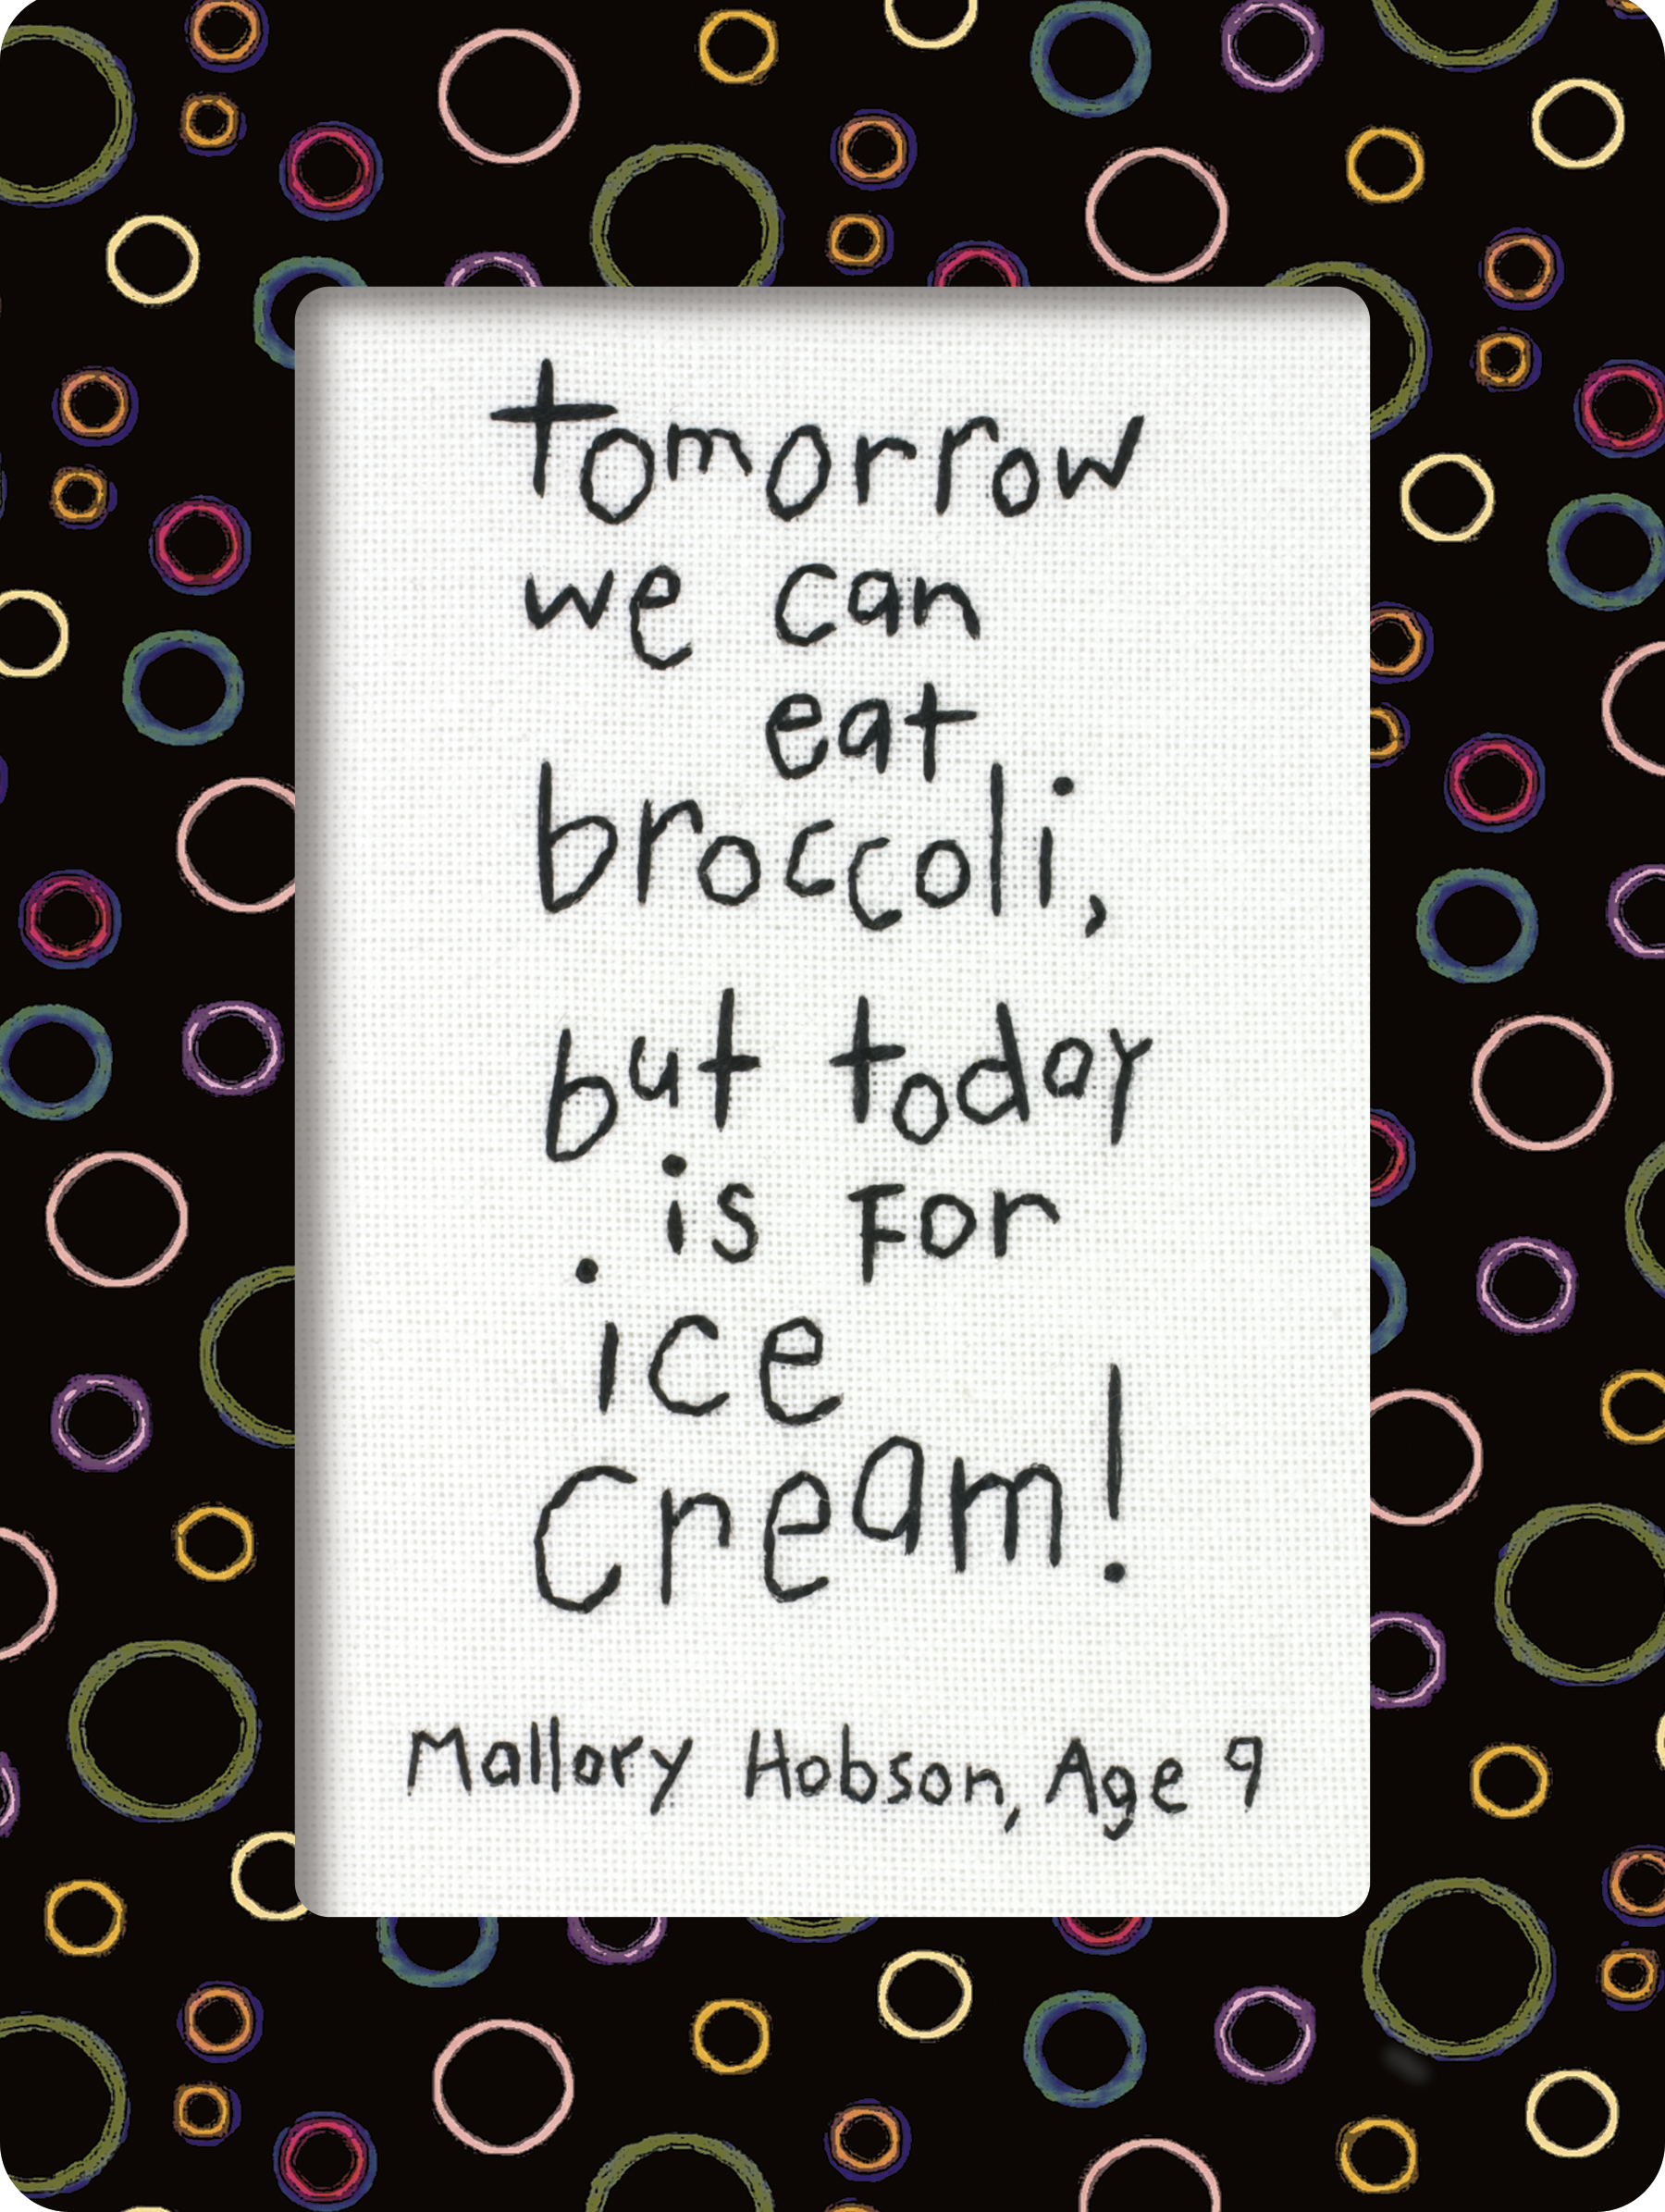 tomorrow
we can
eat
broccoli,
but today
is For
ice
cream!
Mallory Hobson, Age 9